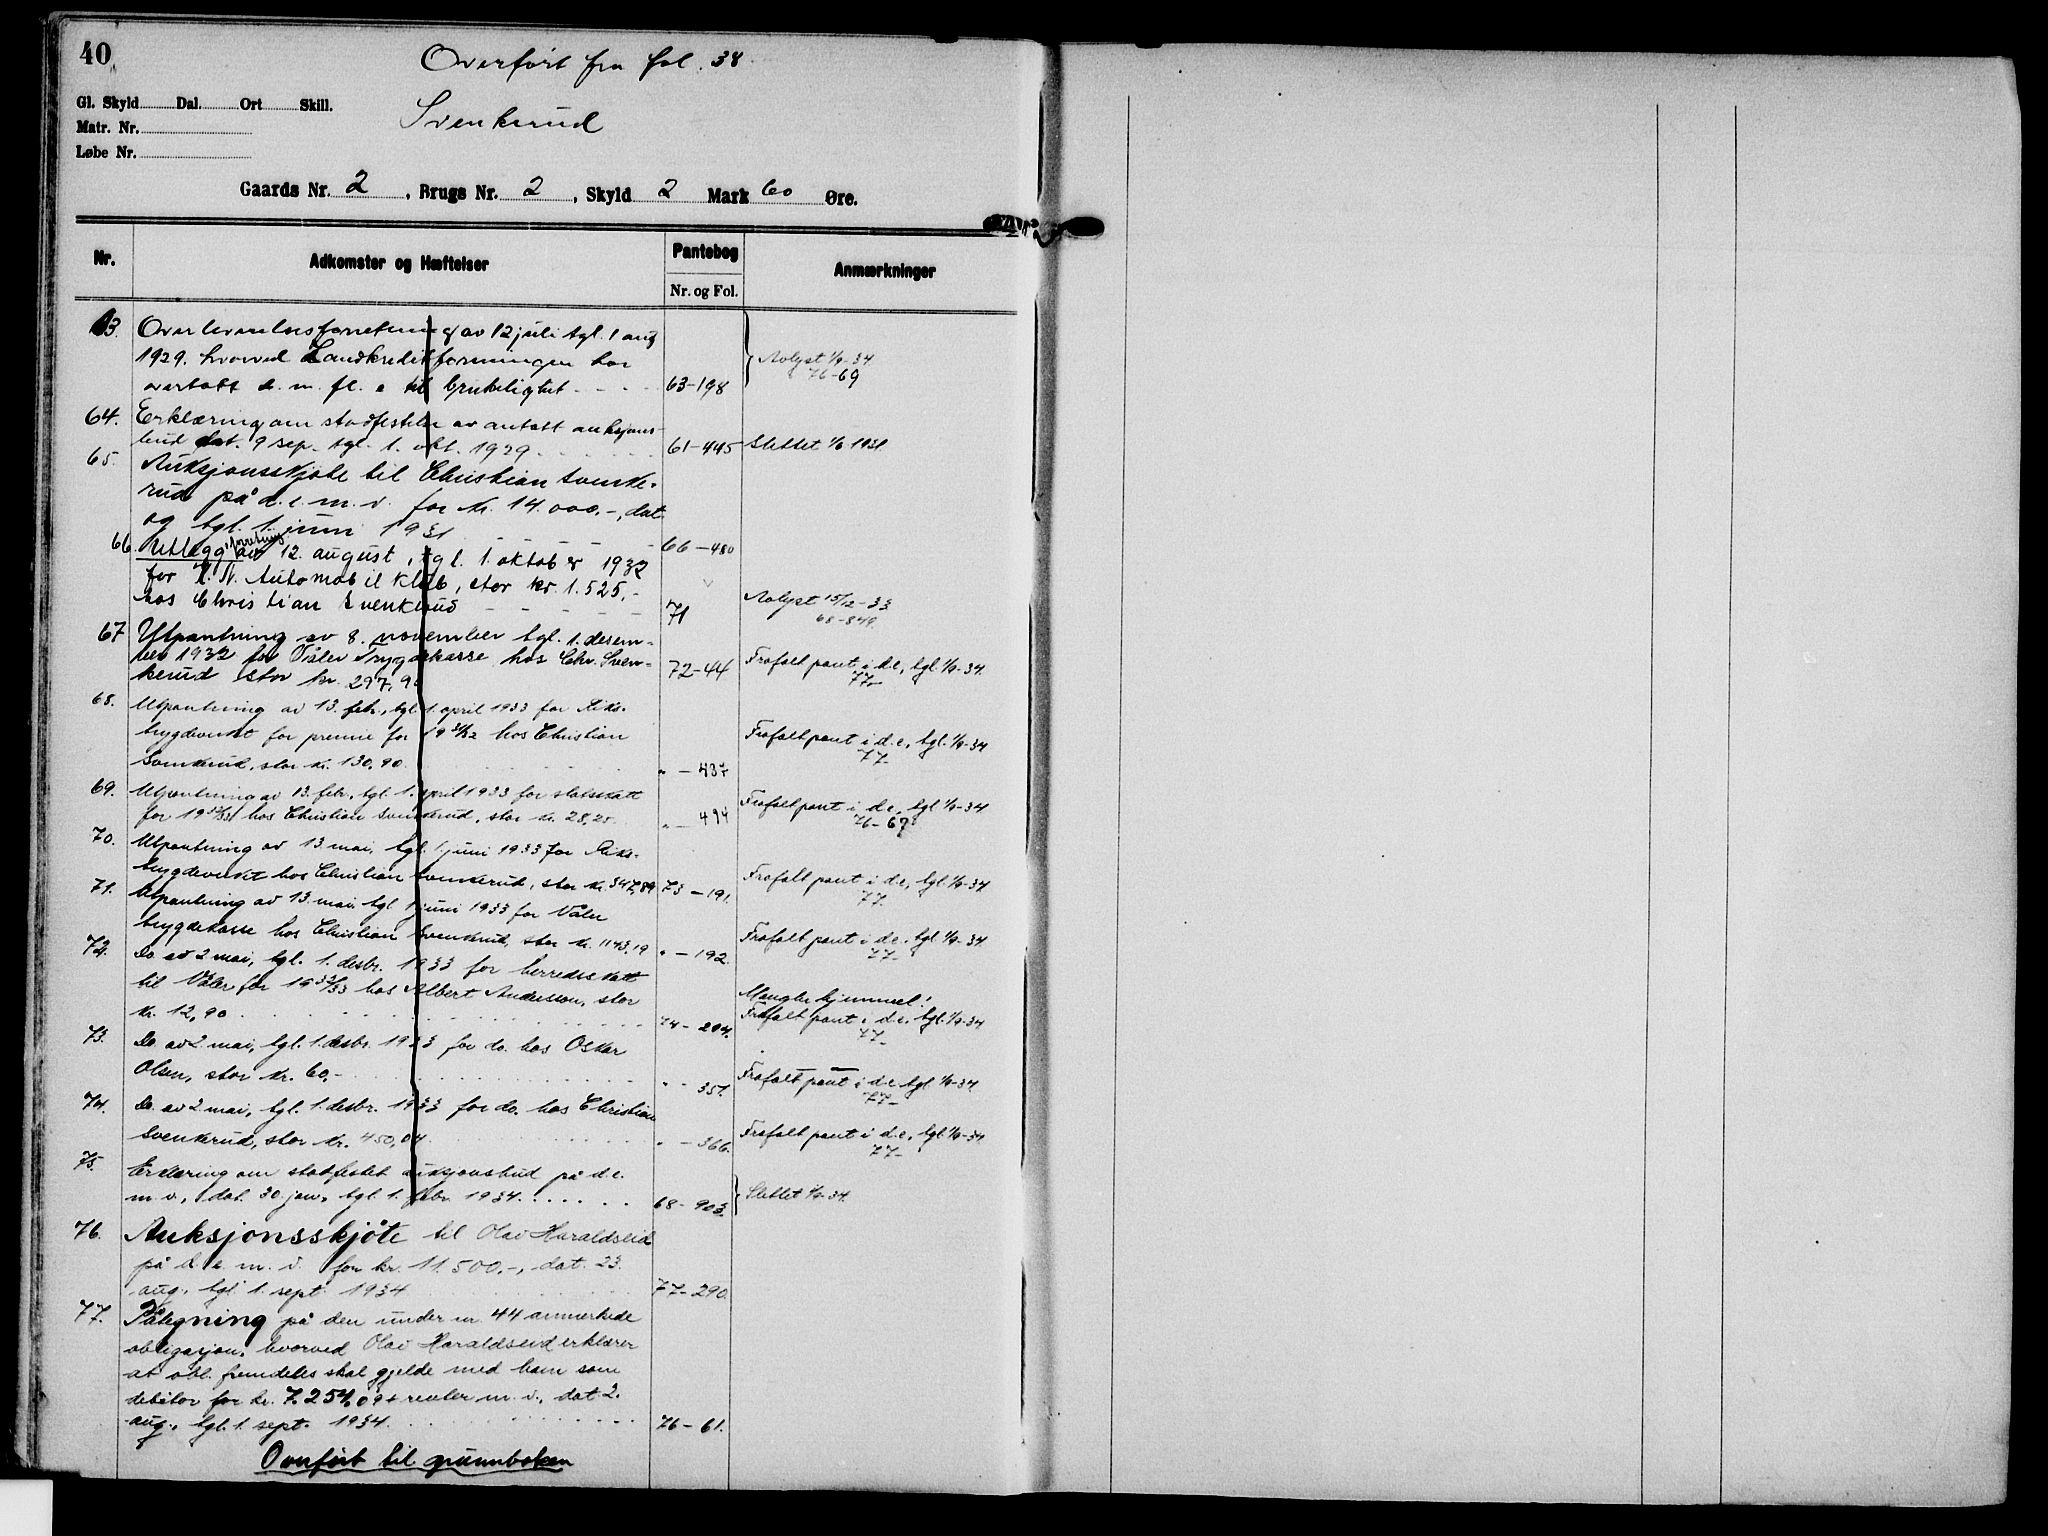 40
Overført fra fol. 38
Gl. Skyld Dal. Ort Skill.
Svenkerud
Matr. Nr.
Løbe Nr.
Gaards Nr. 2, Brugs Nr. 2, Skyld 2 Mark 60 Øre.
Nr. Adkomster og Hæftelser Pantebog Anmærkninger
Nr. og Fol.
63. av 12 juli tgl. 1 aug
1929. hvorved Landkreditforeningen har
overtatt d. m. fl. e til brukelighet - - - 63-198
Avlyst 1/9-34
76-69
64. Erklæring om stadfestelse av antatt auksjons-
bud dat. 9 sep. tgl. 1. okt. 1929 61-445 Slettet 1/6 1931.
65. Auksjonsskjøte til Christian Svenke-
rud på d. e. m. v. for kr. 14.000.-, dat.
og tgl. 1. juni 1931 66-480
66. Utlegg forretning av 12. august, tgl. 1. oktober 1932
for K. N. Automobil klub, stor kr. 1.525.-
hos Christian Svenkerud - - - - - 71
Avlyst 15/12-33
68-849.
67 Utpantning av 8. november tgl. 1. desem-
ber 1932 for Våler Trygdekasse hos Chr. Sven-
kerud stor kr. 297,90 72-44
Frafalt pant i d.e, tgl 1/9-34.
77-
68. Utpantning av 13. febr., tgl. 1. april 1933 for Riks-
trygdeverket for premie for 1931/32 hos Christian
Svenkerud, stor kr. 130,90. " - 437
Frafalt pant i d.e, tgl. 1/9-34
77-
69. Utpantning av 13. febr. tgl. 1. april 1933 for statsskatt
for hos Christian Svenkerud, stor kr. 28,25. " - 494
Frafalt pant i d.e, tgl 1/9-34
76-67
70. Utpantning av 13 mai, tgl. 1. juni 1933 for Riks-
trygdeverket hos Christian Svenkerud, stor kr. 347,89 73-191.
Frafalt pant i d.e, tgl 1/9-34
77.
71. Utpantning av 13. mai, tgl 1 juni 1933 for Våler
trygdekasse hos Christian Svenkerud, stor kr. 1143,19 " - 192.
Frafalt pant i d.e. tgl 1/9-34.
77-
72. Do av 2 mai, tgl. 1. desbr. 1933 for herredsskatt
til Våler for 1932/33 hos Albert Andersson, stor
kr. 12,90 74-204.
Mangler hjemmel!
Frafalt pant i d.e, tgl. 1/9-34
77-
73. Do. av 2. mai, tgl. 1. desbr. 1933 for do. hos Oskar
Olsen, stor kr. 60,- " - 351.
Frafalt pant i d.e tgl 1/9-34
77-
74. Do. av 2 mai, tgl. 1. desbr. 1933 for do. hos Christian
Svenkerud, stor kr. 450,04 " - 366.
Frafalt pant i d.e, tgl. 1/9-34
77-
75. Erklæring om stadfestet auksjonsbud på d. e.
m. v., dat. 30. jan., tgl. 1. febr. 1934. 68-903. Slettet 1/9-34.
76. Auksjonsskjøte til Olav Haraldseid
på d. e. m. v. for kr. 11.500,-, dat. 23.
aug., tgl. 1. sept. 1934 77-290.
77. Påtegning på den under nr. 44 anmerkede
obligasjon, hvorved Olav Haraldseid erklærer
at obl. fremdeles skal gjelde med ham som
debitor for kr. 7.254,09 + renter m. v., dat. 2.
aug., tgl. 1. sept. 1934. 76-61.
Overført til grunnboken